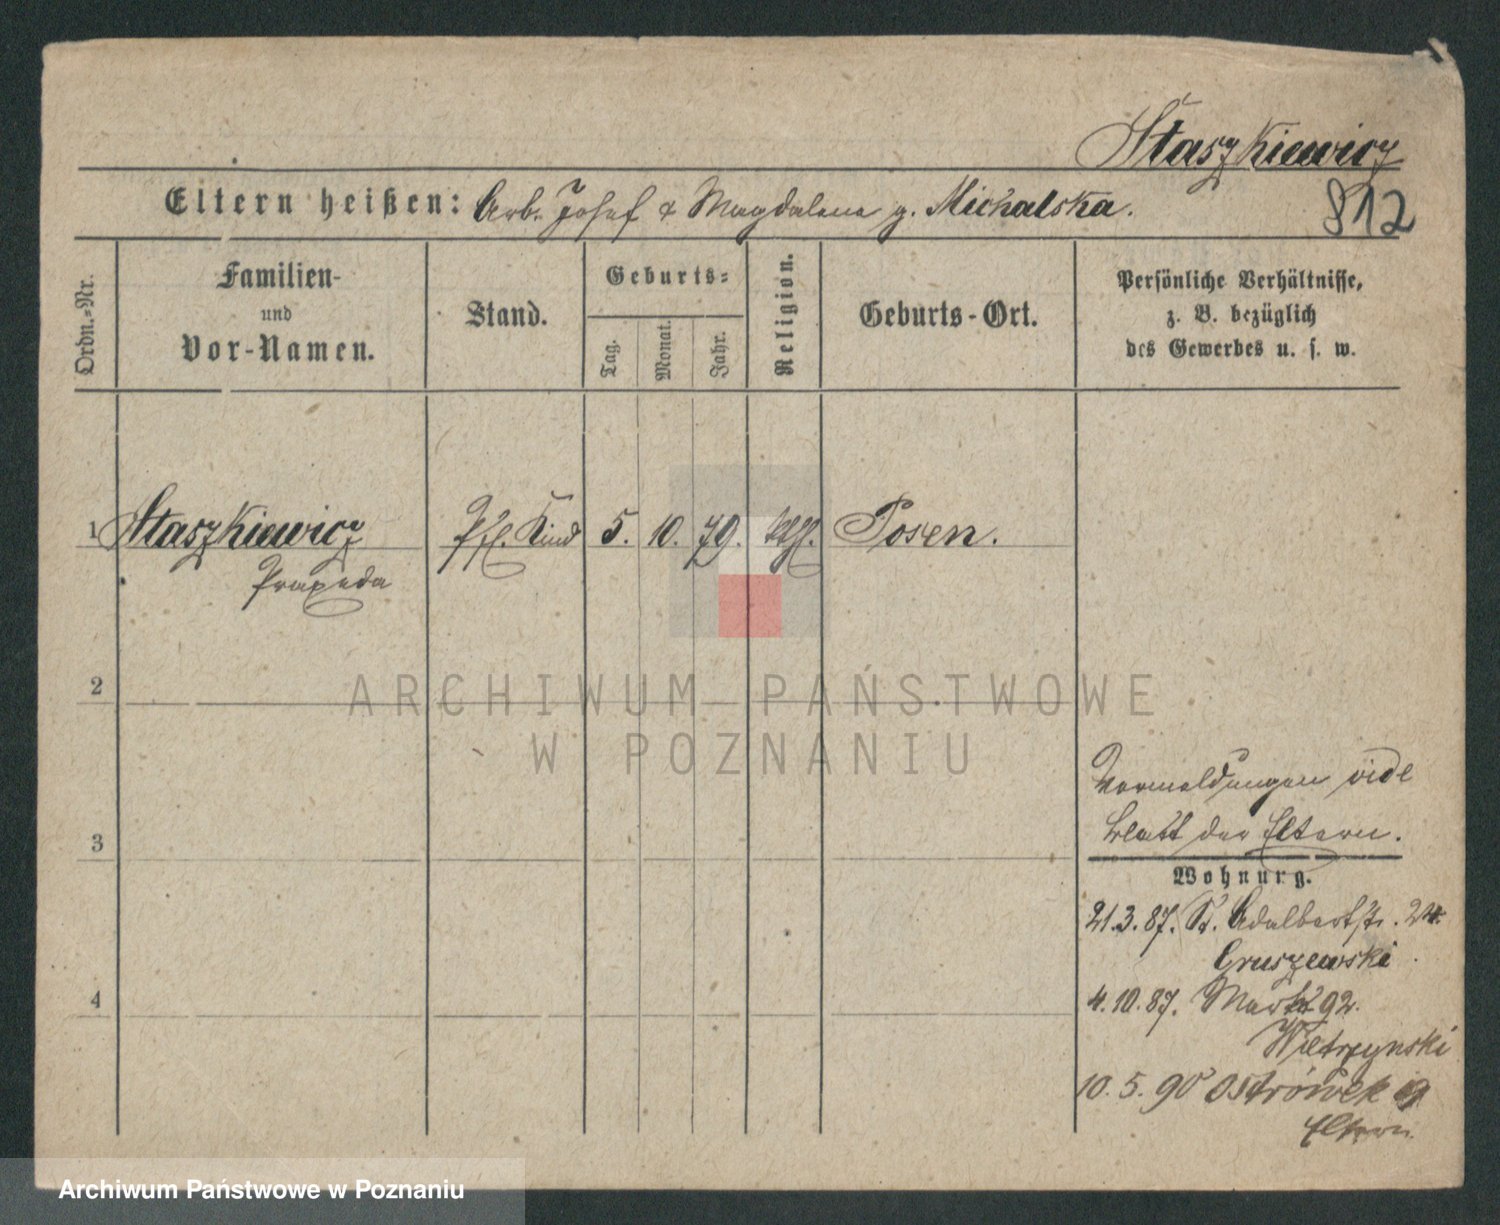 Staszkiewicz
812
Eltern heißen: Arb. Josef & Magdalena g. Michalska.
Ordn.-Nr.
Familien-
und
Vor-Namen.
Stand.
Geburts-
Tag.
Monat.
Jahr.
Religion.
Geburts-Ort.
Persönliche Verhältnisse,
z. B. bezüglich
des Gewerbes u. s. w.
1 Staszkiewicz Pfl. Kind 5. 10. 79. kth. Posen.
Praxeda
2
3
4
Vormeldungen vide
Blatt der Eltern.
Wohnung.
21.3.87. St. Adalbertstr. 24.
Gruszewski
4.10.87. Markt 92.
Wietrzynski
10.5.90 Ostrówek 9
Eltern
ARCHIWUM PAŃSTWOWE
W POZNANIU
Archiwum Państwowe w Poznaniu